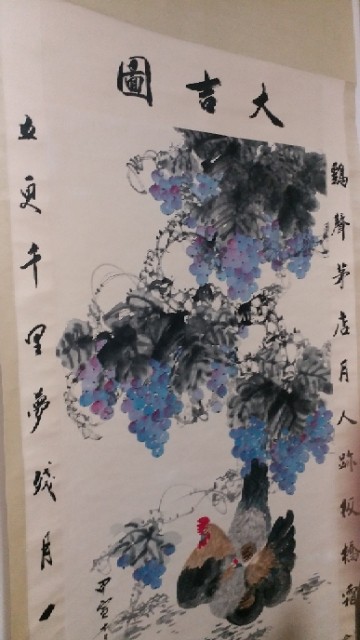 大吉圖
鷄聲茅店月人跡板橋霜
五更千里夢殘月